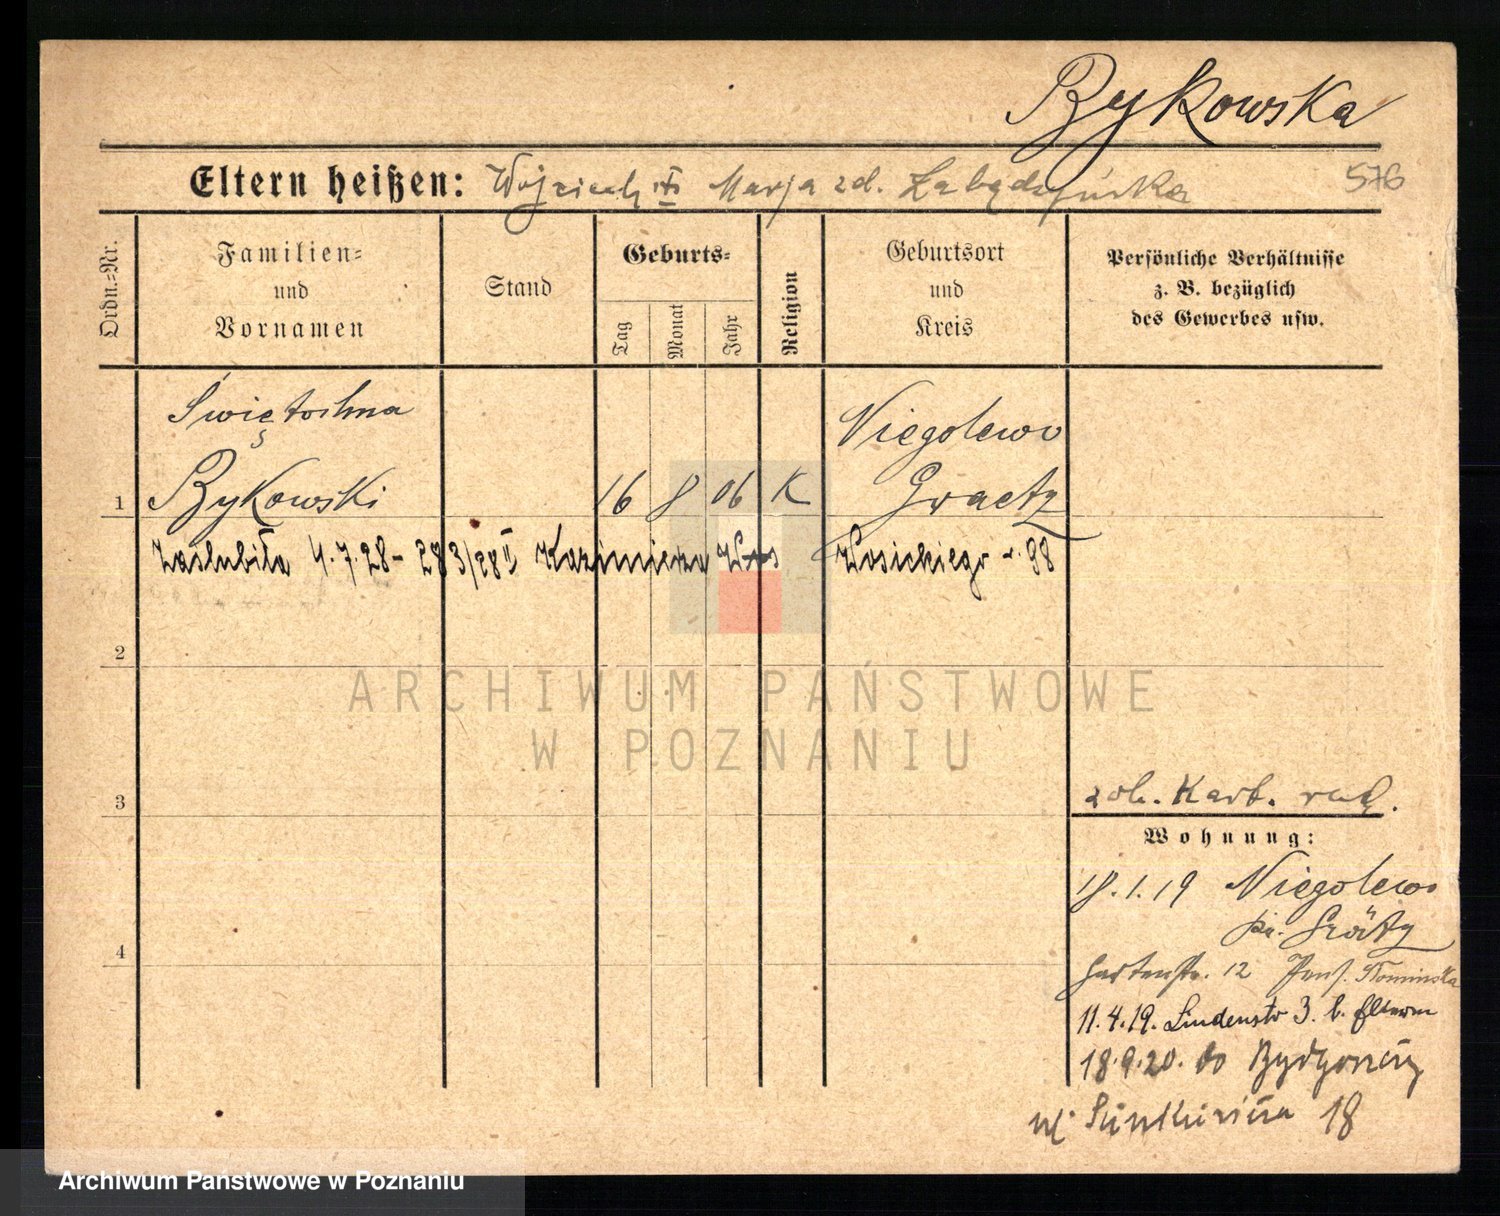 Bykowska
Eltern heißen: Wojciech i Marja zd. Łabędzińska 576
Ordn.-Nr.
Familien- und Vornamen
Stand
Geburts-
Tag Monat Jahr
Religion
Geburtsort und Kreis
Persönliche Verhältnisse z. B. bezüglich des Gewerbes usw.
Świętochna Niegolewo
1 Bykowski 16 8 06 K Graetz
Zaślubiła 4.7.28 - 283/28 II Kazimierza Wosickiego r. 98
2
ARCHIWUM PAŃSTWOWE
W POZNANIU
3
zob. Kart.
Wohnung:
18.1.19 Niegolewo
Kr. Grätz
4
Gartenstr. 12 Pens. Słominska
11.4.19. Lindenstr 3. b. Eltern
18.9.20. do Bydgoszczy
ul. Sienkiewicza 18
Archiwum Państwowe w Poznaniu